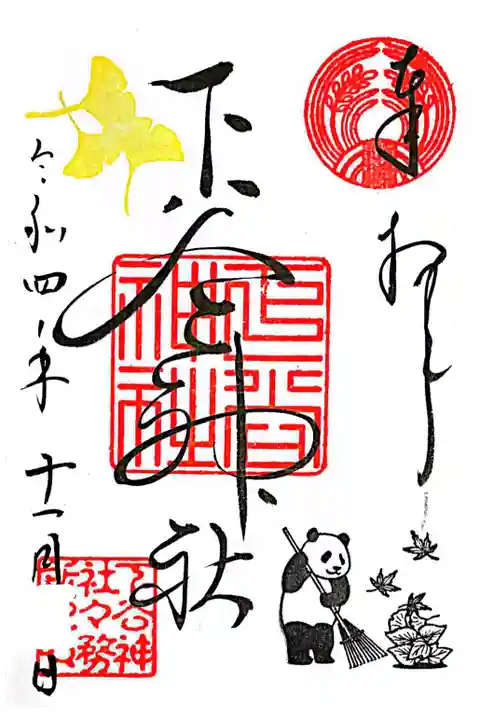 奉拝
下谷神社
令和四年十一月 日
下谷神社
下谷神
社々務
所之印